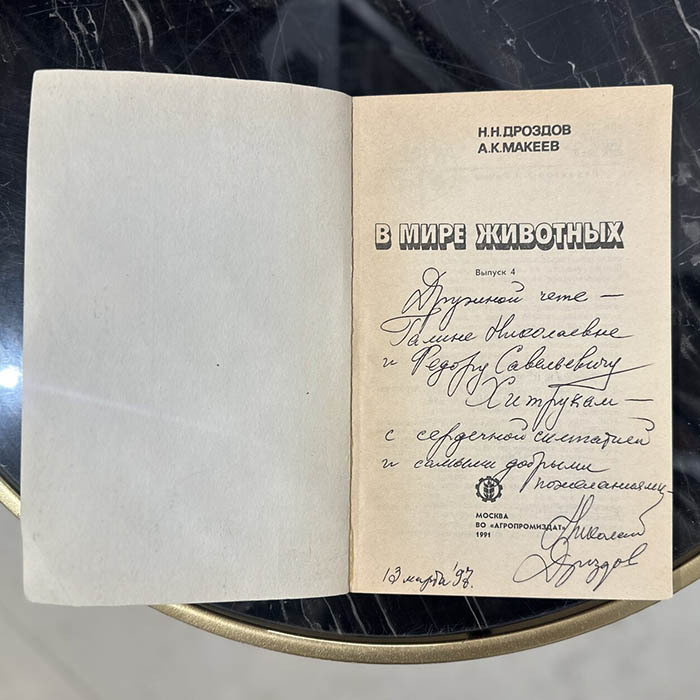 Н.Н.ДРОЗДОВ
А.К.МАКЕЕВ
В МИРЕ ЖИВОТНЫХ
Выпуск 4
Дружной чете —
Галине Николаевне
и Федору Савельевичу
Хитрукам —
с сердечной симпатией
и самыми добрыми
пожеланиями,
МОСКВА
ВО «АГРОПРОМИЗДАТ»
1991
Николай
Дроздов
13 марта '97.